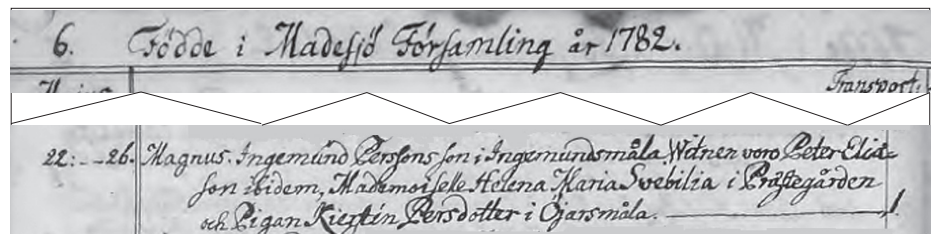 6. Födde i Madesjö Församling år 1782.
Transport:
22: - - 26. Magnus. Ingemund Perssons son i Ingemundsmåla. Witnen voro Peter Elia=
son ibidem, Mademoiselle Helena Maria Svebilia i Prästegården
och Pigan Kierstin Persdotter i Öjarsmåla. 1.